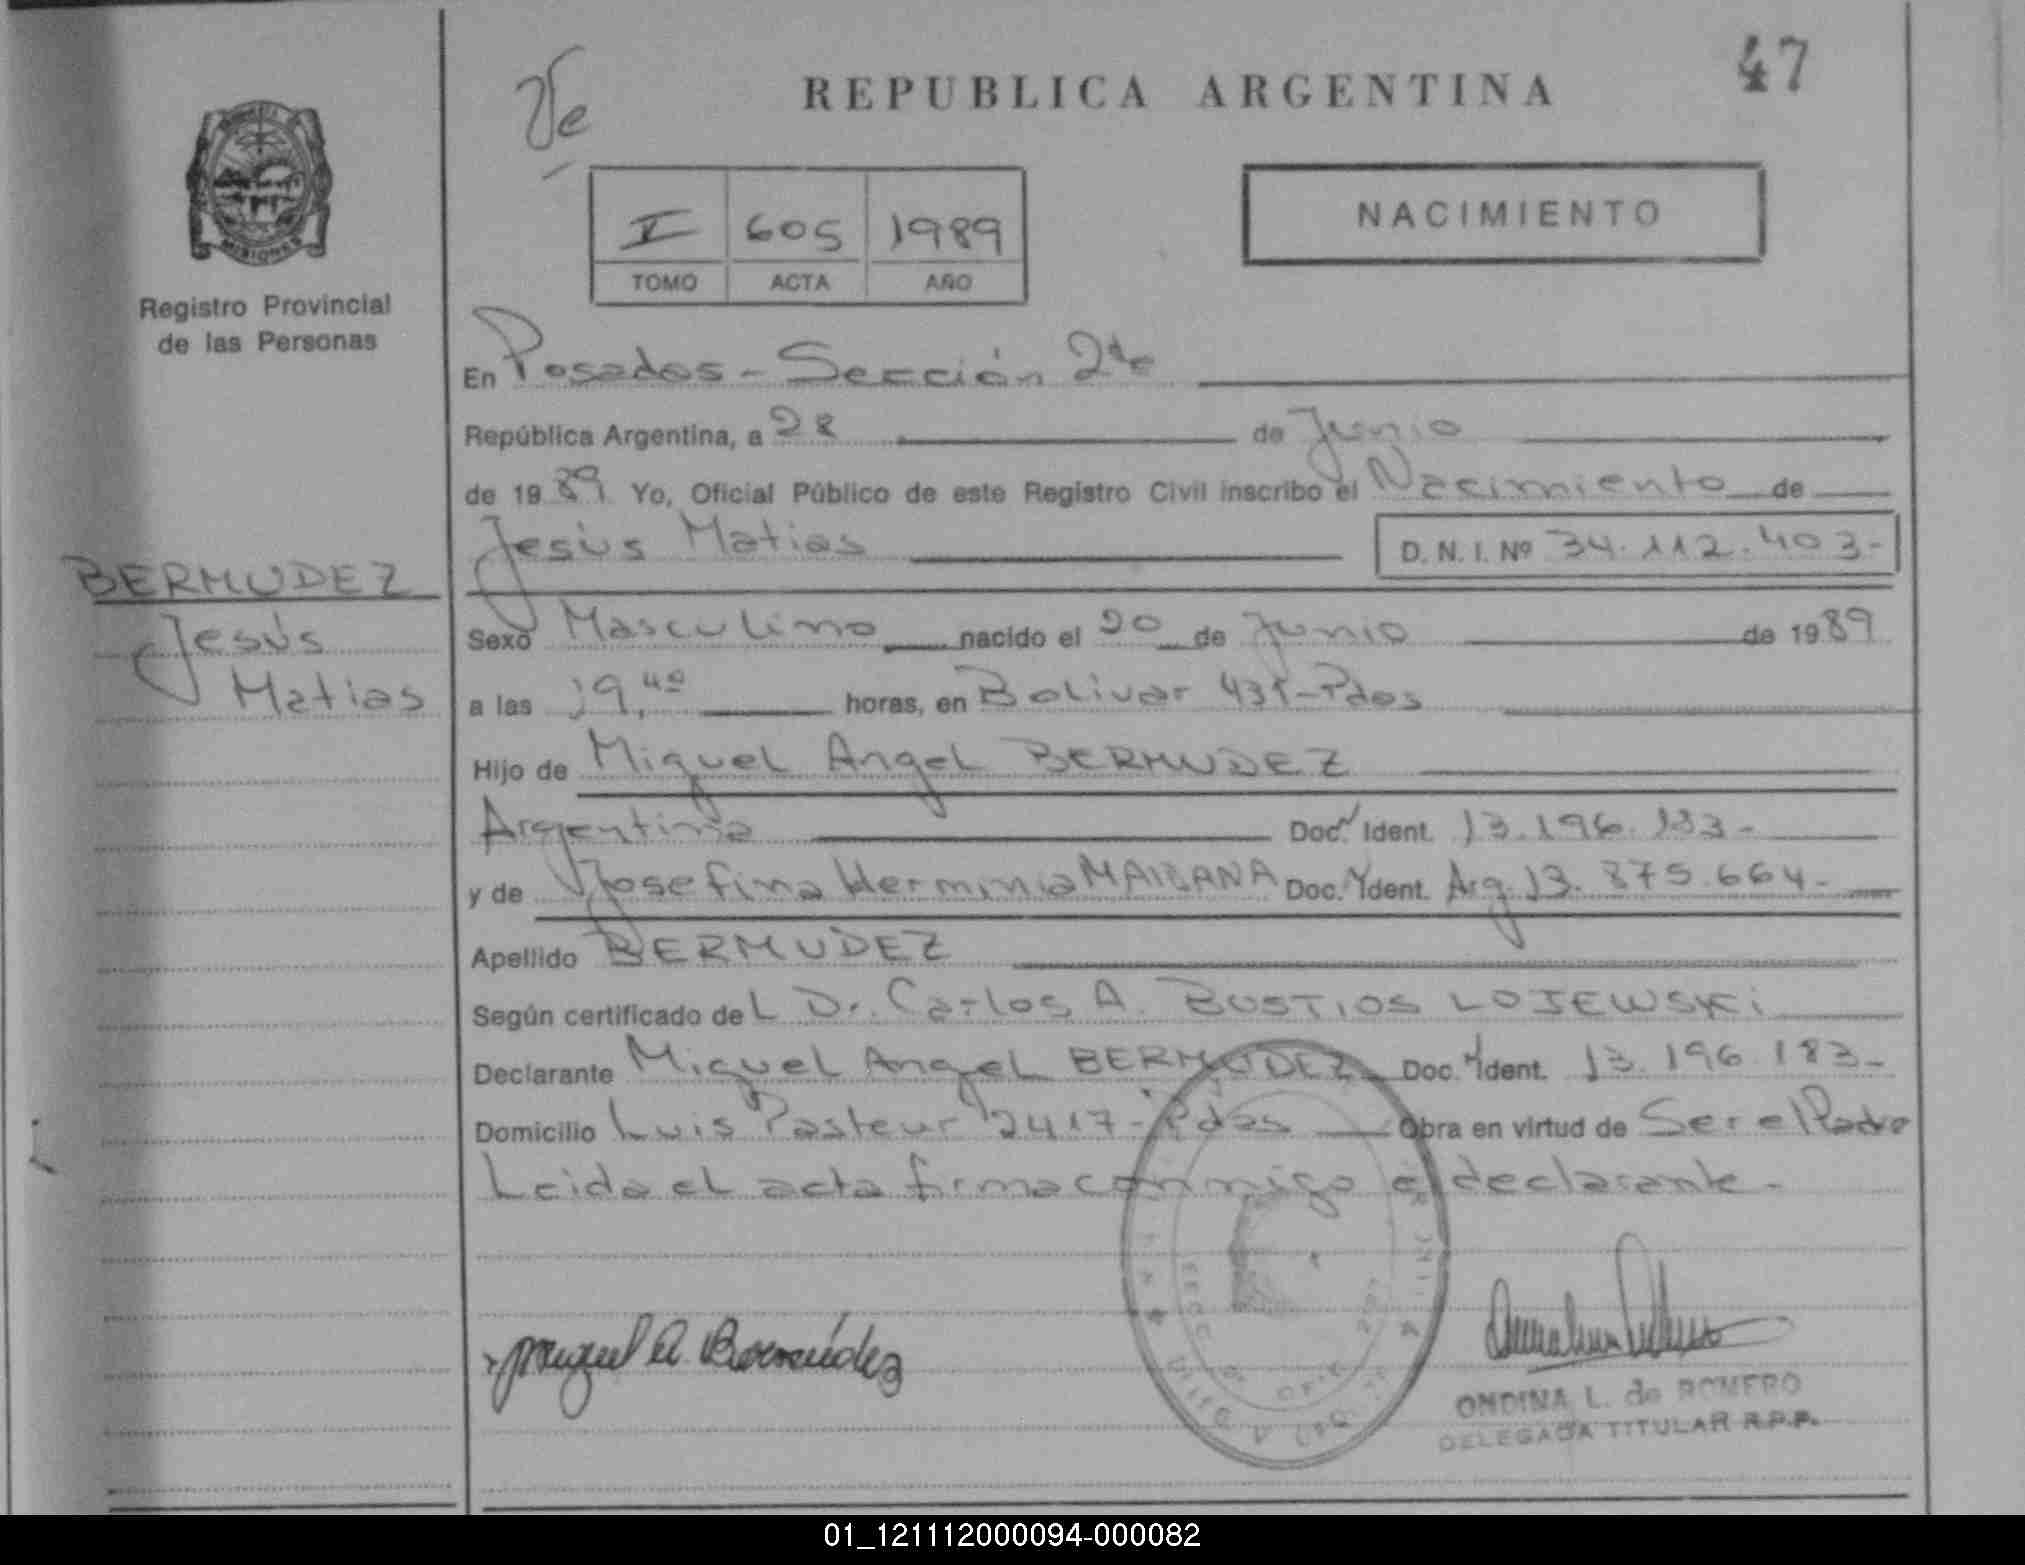 47
REPUBLICA ARGENTINA
Ve
NACIMIENTO
I 605 1989
TOMO ACTA AÑO
MISIONES
Registro Provincial
de las Personas
En Posadas - Sección 2da
República Argentina, a 28 de Junio
de 1989 Yo, Oficial Público de este Registro Civil inscribo el Nacimiento de
Jesús Matias D. N. I. Nº 34.112.403-
BERMUDEZ
Jesús
Matias
Sexo Masculino nacido el 20 de Junio de 1989
a las 19,40 horas, en Bolivar 431-Pdas
Hijo de Miguel Angel BERMUDEZ
Argentina Doc. Ident. 13.196.183-
y de Josefina Herminia Doc. Ident. Arg. 13.875.664-
Apellido BERMUDEZ
Según certificado del Dr. Carlos A. BUSTIOS LOJEWSKi
Declarante Miguel Angel BERMUDEZ Doc. Ident. 13.196.183-
Domicilio Luis Pasteur 2417-Pdas Obra en virtud de Ser el Padre
Leida el acta firma conmigo el declarante-
Miguel A. Bermúdez
ONDINA L. de ROMERO
DELEGADA TITULAR R.P.P.
01_121112000094-000082